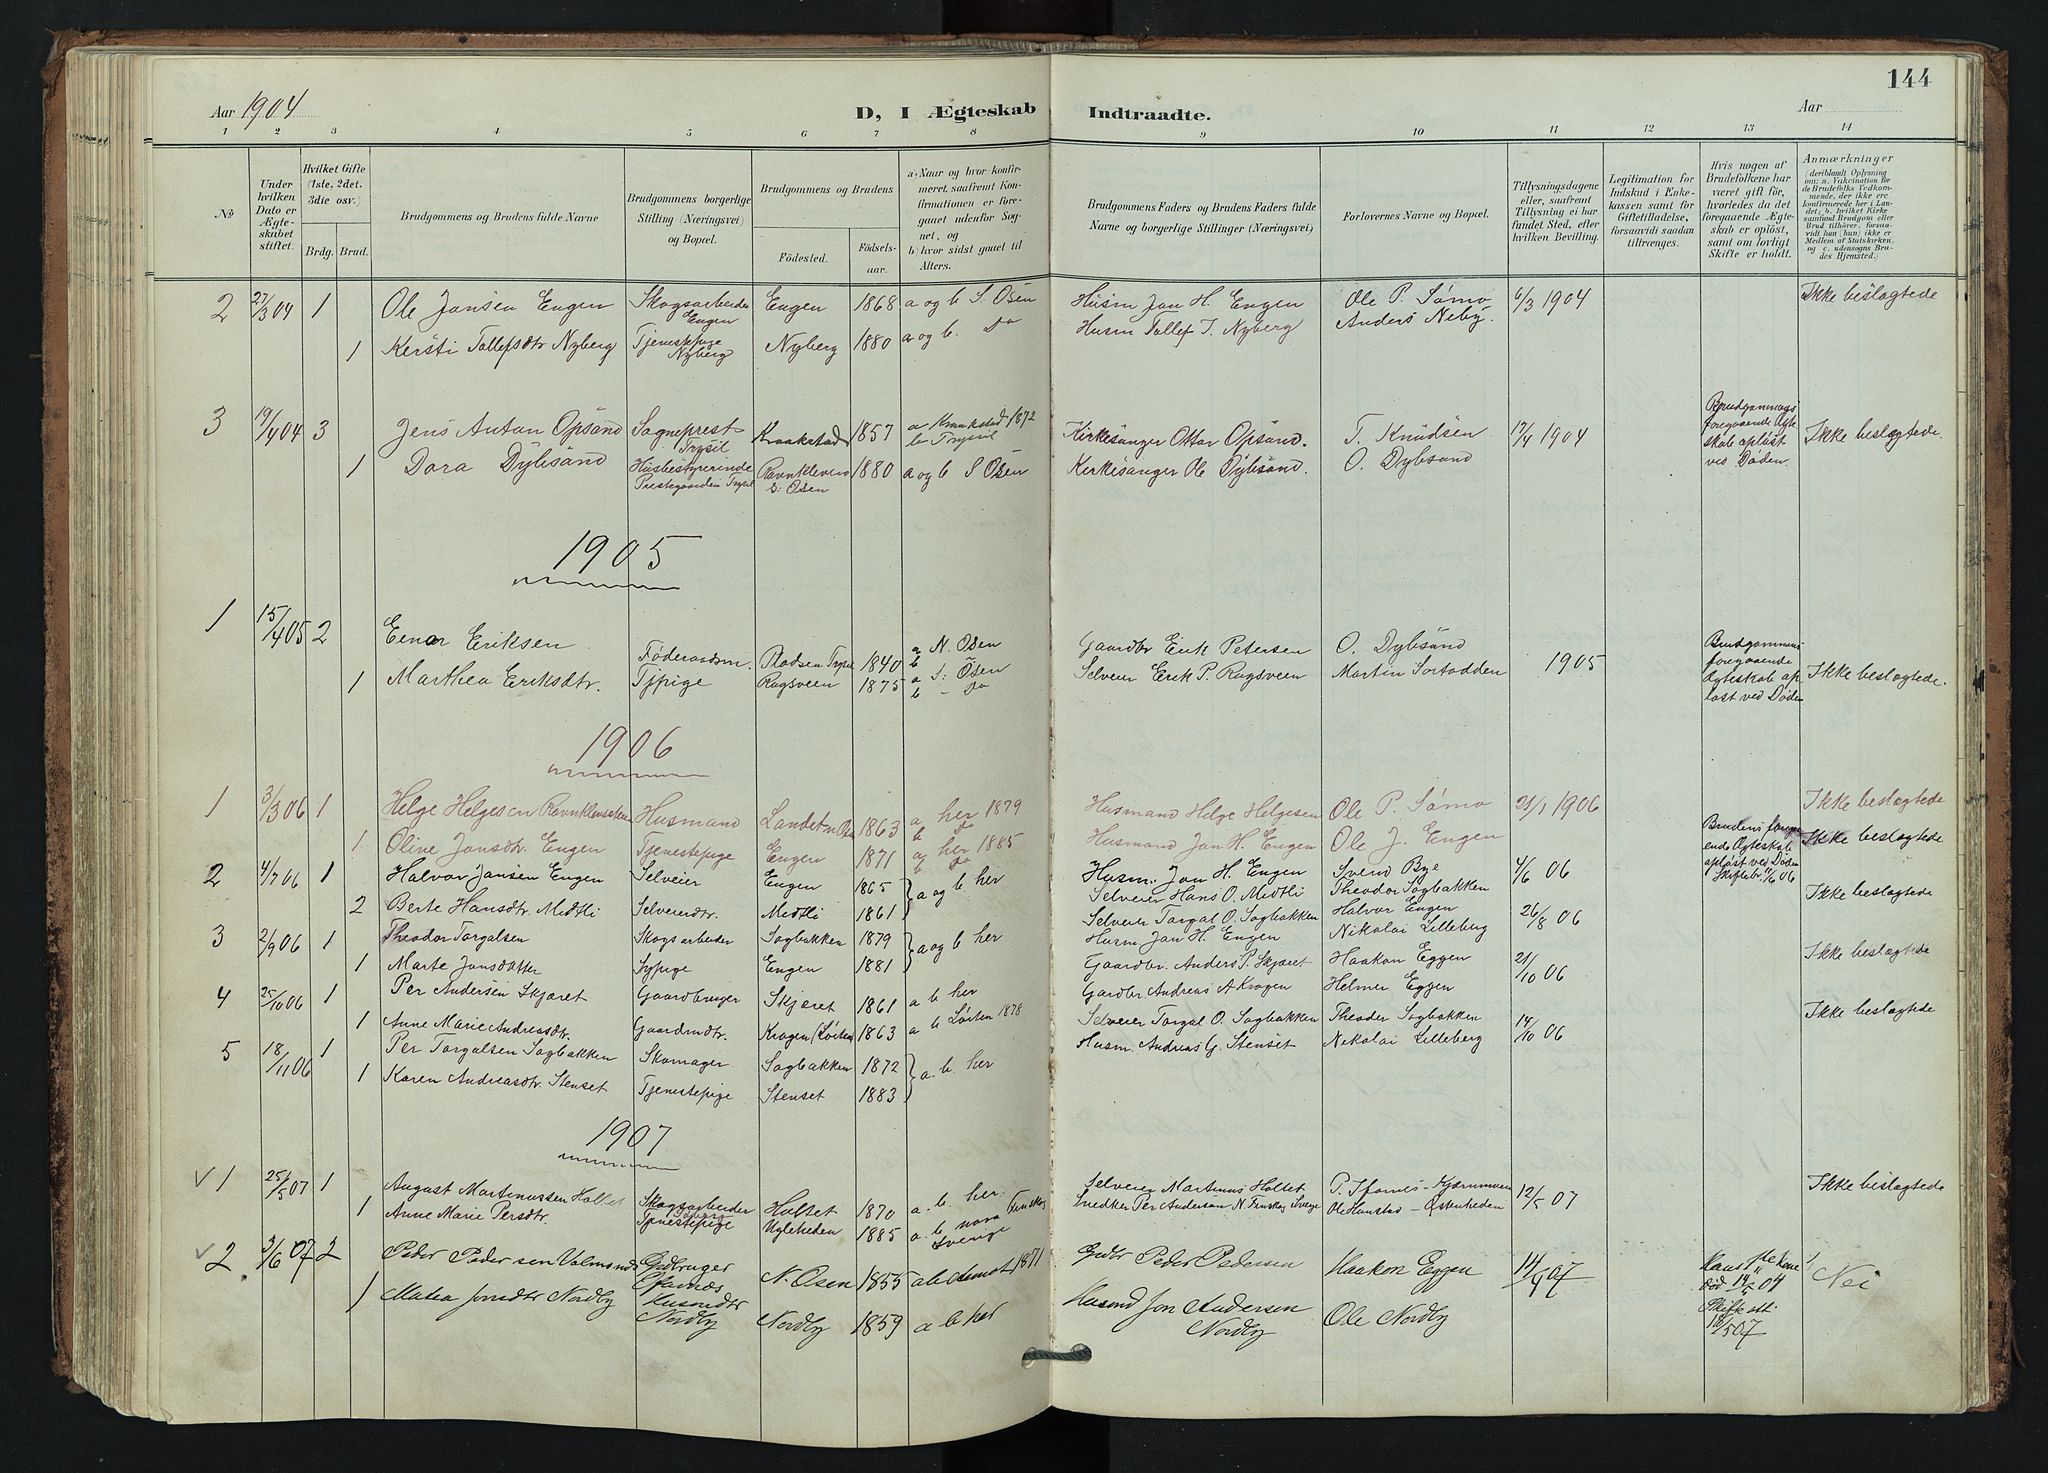 144
Aar 1904
D, I Ægteskab Indtraadte.
Aar
1 2 3 4 5 6 7 8 9 10 11 12 13 14
№
Under hvilken Dato er Ægteskabet stiftet.
Hvilket Gifte (1ste, 2det, 3die osv.)
Brdg. Brud.
Brudgommens og Brudens fulde Navne
Brudgommens borgerlige Stilling (Næringsvei) og Bopæl.
Brudgommens og Brudens
Fødested.
Fødselsaar.
a) Naar og hvor konfirmeret, saafremt Konfirmationen er foregaaet udenfor Sognet, og
b) hvor sidst gaaet til Alters.
Brudgommens Faders og Brudens Faders fulde Navne og borgerlige Stillinger (Næringsvei)
Forlovernes Navne og Bopæl.
Tillysningsdagene eller, saafremt Tillysning ei har fundet Sted, efter hvilken Bevilling.
Legitimation for Indskud i Enkekassen samt for Giftetilladelse, forsaavidt saadan tiltrænges.
Hvis nogen af Brudefolkene har været gift før, hvorledes da det foregaaende Ægteskab er opløst, samt om lovligt Skifte er holdt.
Anmærkninger
(deriblandt Oplysning om: a. Vakcination for de Brudefolks Vedkommende, der ikke ere konfirmerede her i Landet; b. hvilket Kirkesamfund Brudgom eller Brud tilhører, forsaavidt han (hun) ikke er Medlem af Statskirken, og c. udensogns Brudes Hjemsted.)
2 27/3 04 1 Ole Jansen Engen Skogsarbeider Engen Engen 1868 a og b S. Osen Husm Jan H. Engen Ole P. Sømo 6/3 1904 Ikke beslægtede
1 Kersti Tollefsdtr Nyberg Tjenestepige Nyberg Nyberg 1880 a og b. Do Husm Tollef J. Nyberg Anders Neby.
3 19/4 04 3 Jens Anton Opsand Sogneprest Trysil Kraakstad 1857 a Kraakstad 1872 b Trysil Kirkesanger Ottar Opsand. T. Knudsen 17/4 1904 Brudgommens foregaaende Ægteskab opløst ved Døden. Ikke beslægtede.
1 Dora Dybsand Husbestyrerinde Prestegaarden Trysil Ravnkleven S. Osen 1880 a og b S Osen Kirkesanger Ole Dybsand. O. Dybsand
1905
1 15/4 05 2 Einar Eriksen Føderaadsm. Trysil 1840 a N. Osen b Gaardbr Erik Petersen O. Dybsand 1905 Brudgommens foregaaende Ægteskab opløst ved Døden Ikke beslægtede.
1 Marthea Eriksdtr. Tjpige Rogsveen 1875 a S. Osen b - Do Selveier Erik P. Rogsveen Martin
1906
1 3/3 06 1 Helge Helgesen Husmand 1863 a her 1879 b Do Husmand Helge Helgesen Ole P. Sømo 21/1 1906 Ikke beslægtede
1 Oline Jansdtr. Engen Tjenestepige Engen 1871 a her 1885 b Do Husmand Jan H. Engen Ole J. Engen
2 4/7 06 1 Halvor Jansen Engen Selveier Engen 1865 a og b her Husm. Jan H. Engen Svend Bye 4/6 06 Brudens foregaaende Ægteskab opløst ved Døden Skiftebr. 11/6 06 Ikke beslægtede
2 Berte Hansdtr. Midtli Selveierdtr. Midtli 1861 Selveier Hans O. Midtli Theodor Sagbakken
3 2/9 06 1 Theodor Torgalsen Skogsarbeider Sagbakken 1879 a og b her Selveier Torgal O. Sagbakken Halvor Engen 26/8 06 Ikke beslægtede
1 Marte Jonsdatter Sypige Engen 1881 Husm Jan H. Engen Nikolai Lilleberg
4 25/10 06 1 Per Andersen Skjæret Gaardbruger Skjæret 1861 a b her Gaardbr. Anders P. Skjæret Haakon Eggen 21/10 06 Ikke beslægtede
1 Anne Marie Andreasdtr. Gaardmdtr. Kragen (Løiten) 1863 a b Løiten 1878 Gardbr Andreas A Kragen Helmer Eggen
5 18/11 06 1 Per Torgalsen Sagbakken Skomager Sagbakken 1872 a. b. her Selveier Torgal O. Sagbakken Theodor Sagbakken 14/10 06 Ikke beslægtede
1 Karen Andreasdtr. Stenset Tjenestepige Stenset 1883 Husm. Andreas G. Stenset Nikolai Lilleberg
1907
1 25/5 07 1 August Martinussen Holtet Skogsarbeider Holtet 1870 a. b. her. Selveier Martinus Holtet 12/5 07 Ikke beslægtede
1 Anne Marie Persdtr. Tjenestepige 1885 a. b Sverige Snedker Per Anderson N. Finskog Sverige Ole Hanstad - Østenheden
2 3/6 07 2 Peder Pedersen Gdbruger N. Osen 1855 a b Aamot 1871 Gdbr Peder Pedersen Haakon Eggen 14/4 07 Hans død 14/5 04 Skifteatt. 18/5 07 Nei
1 Matea Jonsdtr Nordby Husmdtr Nordby Nordby 1859 a b her Husmd Jon Andersen Nordby Ole Nordby